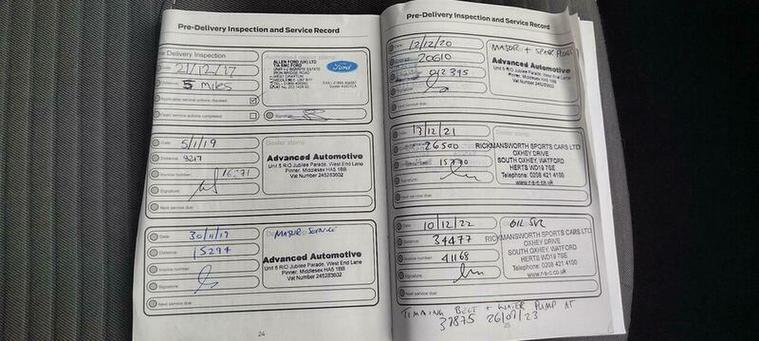 Pre-Delivery Inspection and Service Record
Delivery Inspection
21/12/17
5 MILES
ALLEN FORD (UK) LTD
Ford
Signature
Date 5/1/19
Distance 9217
Invoice number 16271
Signature
Next service due
Advanced Automotive
Unit 5 R/O Jubilee Parade, West End Lane
Pinner, Middlesex HA5 1BB
Vat Number 245283602
Date 30/11/19
Distance 15294
Invoice number
Signature
Next service due
MAJOR SERVICE
Advanced Automotive
Unit 5 R/O Jubilee Parade, West End Lane
Pinner, Middlesex HA5 1BB
Vat Number 245283602
24
Pre-Delivery Inspection and Service Record
Date 12/12/20
20610
Next service due
MAJOR + SPARK PLUGS
Advanced Automotive
Unit 5 R/O Jubilee Parade, West End Lane
Pinner, Middlesex HA5 1BB
Vat Number 245283602
Date 13/12/21
26500
15770
Signature
Next service due
Dealer stamp
RICKMANSWORTH SPORTS CARS LTD
OXHEY DRIVE
SOUTH OXHEY, WATFORD
HERTS WD19 7SE
Telephone: 0208 421 4100
www.r-s-c.co.uk
Date 10/12/22
Distance 34477
Invoice number 41168
Signature
Next service due
OIL SVR
RICKMANSWORTH SPORTS CARS LTD
OXHEY DRIVE
SOUTH OXHEY, WATFORD
HERTS WD19 7SE
Telephone: 0208 421 4100
www.r-s-c.co.uk
TIMING BELT + WATER PUMP AT
37875 26/07/23
25